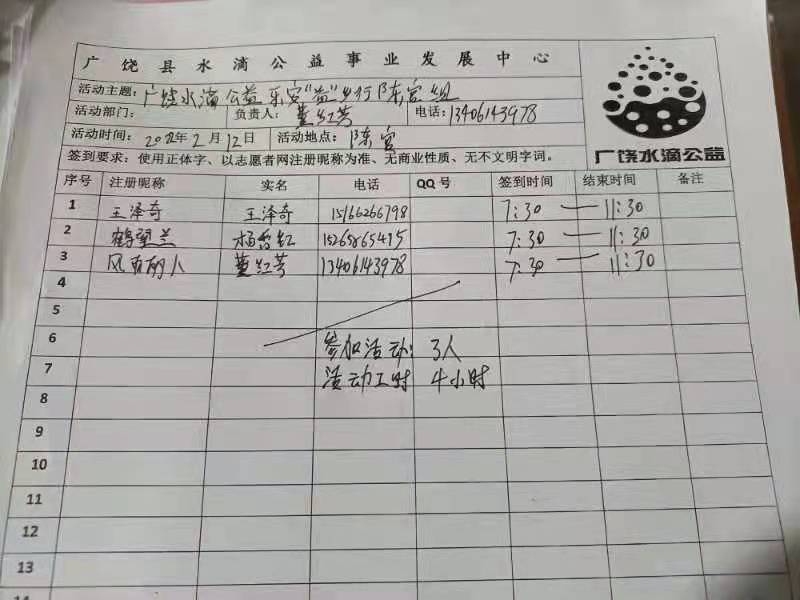 广饶县水滴公益事业发展中心
活动主题：广饶水滴公益 乐安"益"乡行 陈官组
活动部门： 负责人：董红芳 电话：13406143978
活动时间：2022年2月12日 活动地点：陈官
广饶水滴公益
签到要求：使用正体字、以志愿者网注册昵称为准、无商业性质、无不文明字词。
序号 注册昵称 实名 电话 QQ号 签到时间 结束时间 备注
1 王泽奇 王泽奇 15166266798 7:30 — 11:30
2 鹤望兰 杨 红 15265865415 7:30 — 11:30
3 董红芳 13406143978 7:30 — 11:30
4
5
6 参加活动：3人
7 活动工时 4小时
8
9
10
11
12
13
14